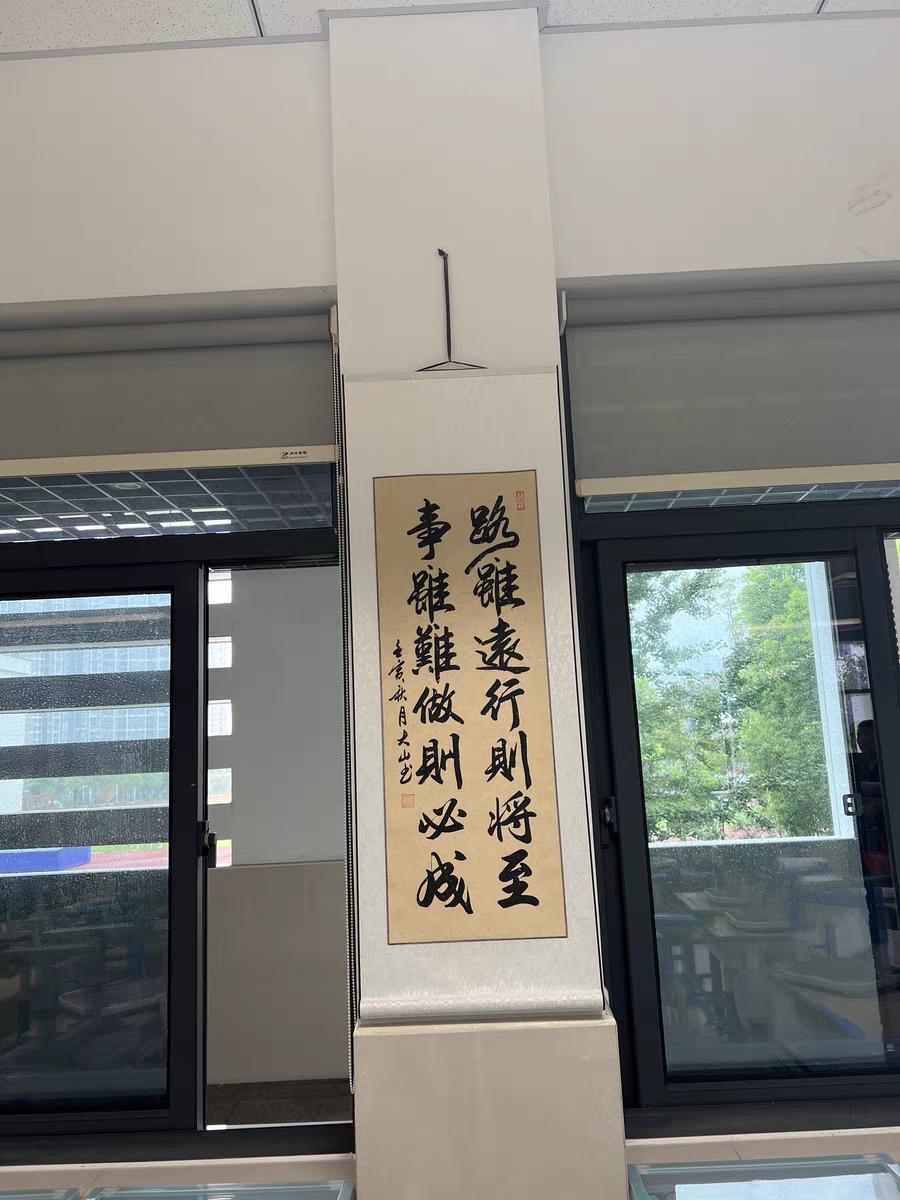 路雖遠行則将至
事雖難做則必成
壬寅秋月大山书